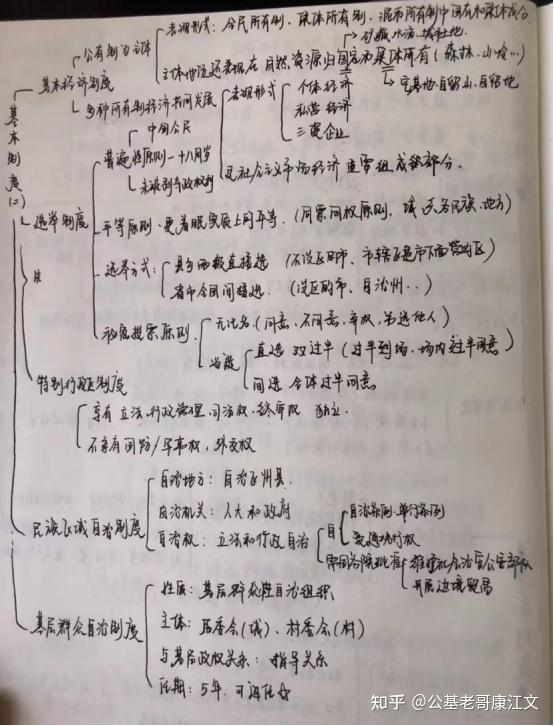 基本制度(二)
基本经济制度
公有制为主体
表现形式：全民所有制、集体所有制、混和所有制中国有和集体成份
矿藏、水流、城市土地
主体地位还表现在 自然资源归国家和集体所有(森林、山岭…)
宅基地、自留山、自留地
多种所有制经济共同发展
表现形式
个体经济
私营经济
三资企业
是社会主义市场经济 重要组成部分。
选举制度
中国公民
普遍性原则—十八周岁
未被剥夺政权利
平等原则·更着眼实质上的平等。(同票同权原则、城 各民族、地方)
选举方式：
县乡两级直接选 (不设区的市、市辖区是市下面带的区)
省市全国间接选。(设区的市、自治州‥)
秘密投票原则
无记名(同意、不同意、弃权、另选他人)
当选
直选 双过半 (过半到场、场内过半同意)
间选 全体过半同意
特别行政区制度
享有 立法、行政管理、司法权、终审权 独立.
不享有国防/军事权，外交权
民族区域自治制度
自治地方：自治区州县.
自治机关：人大和政府
自治权：立法和行政自治
自治条例、单行条例
变通执行权
维护社会治安公安部队
开展边境贸易
基层群众自治制度
性质：基层群众性自治组织
主体：居委会(城)、村委会(村)
与基层政权关系：指导关系
任期：5年.可连任
知乎 @公基老哥康江文